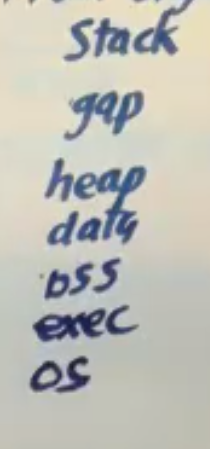 Stack
gap
heap
data
bss
exec
OS